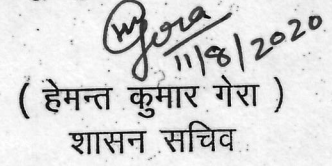 11/8/2020
( हेमन्त कुमार गेरा )
शासन सचिव